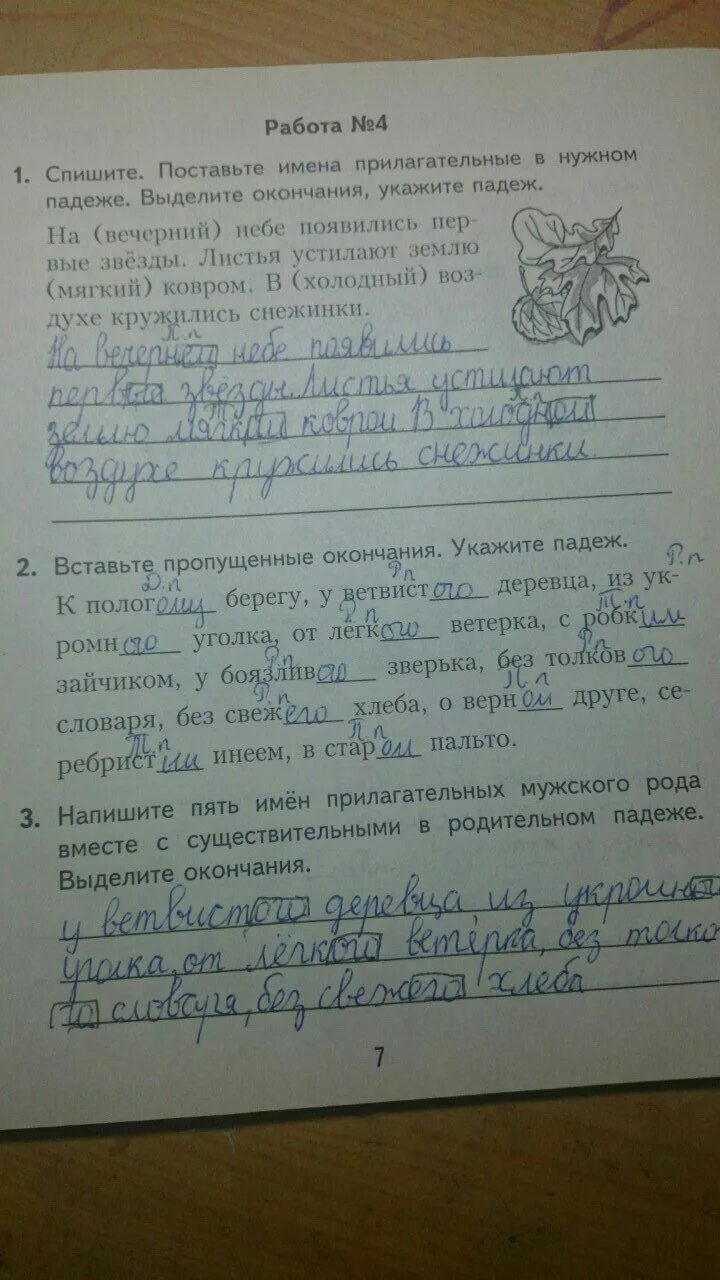 Работа №4
1. Спишите. Поставьте имена прилагательные в нужном
падеже. Выделите окончания, укажите падеж.
На (вечерний) небе появились пер-
вые звёзды. Листья устилают землю
(мягкий) ковром. В (холодный) воз-
духе кружились снежинки.
П.п
На вечернем небе появились
первые звёзды. Листья устилают
Т п
землю мягким ковром. В холодном
воздухе кружились снежинки.
2. Вставьте пропущенные окончания. Укажите падеж.
Д.п Р.п Р.п
К пологому берегу, у ветвистого деревца, из ук-
Р.п Т.п
ромного уголка, от лёгкого ветерка, с робким
Р.п Р.п
зайчиком, у боязливого зверька, без толкового
Р.п П.п
словаря, без свежего хлеба, о верном друге, се-
Т.п П.п
ребристым инеем, в старом пальто.
3. Напишите пять имён прилагательных мужского рода
вместе с существительными в родительном падеже.
Выделите окончания.
у ветвистого деревца из укромного
уголка, от лёгкого ветерка, без толково
го словаря, без свежего хлеба
7